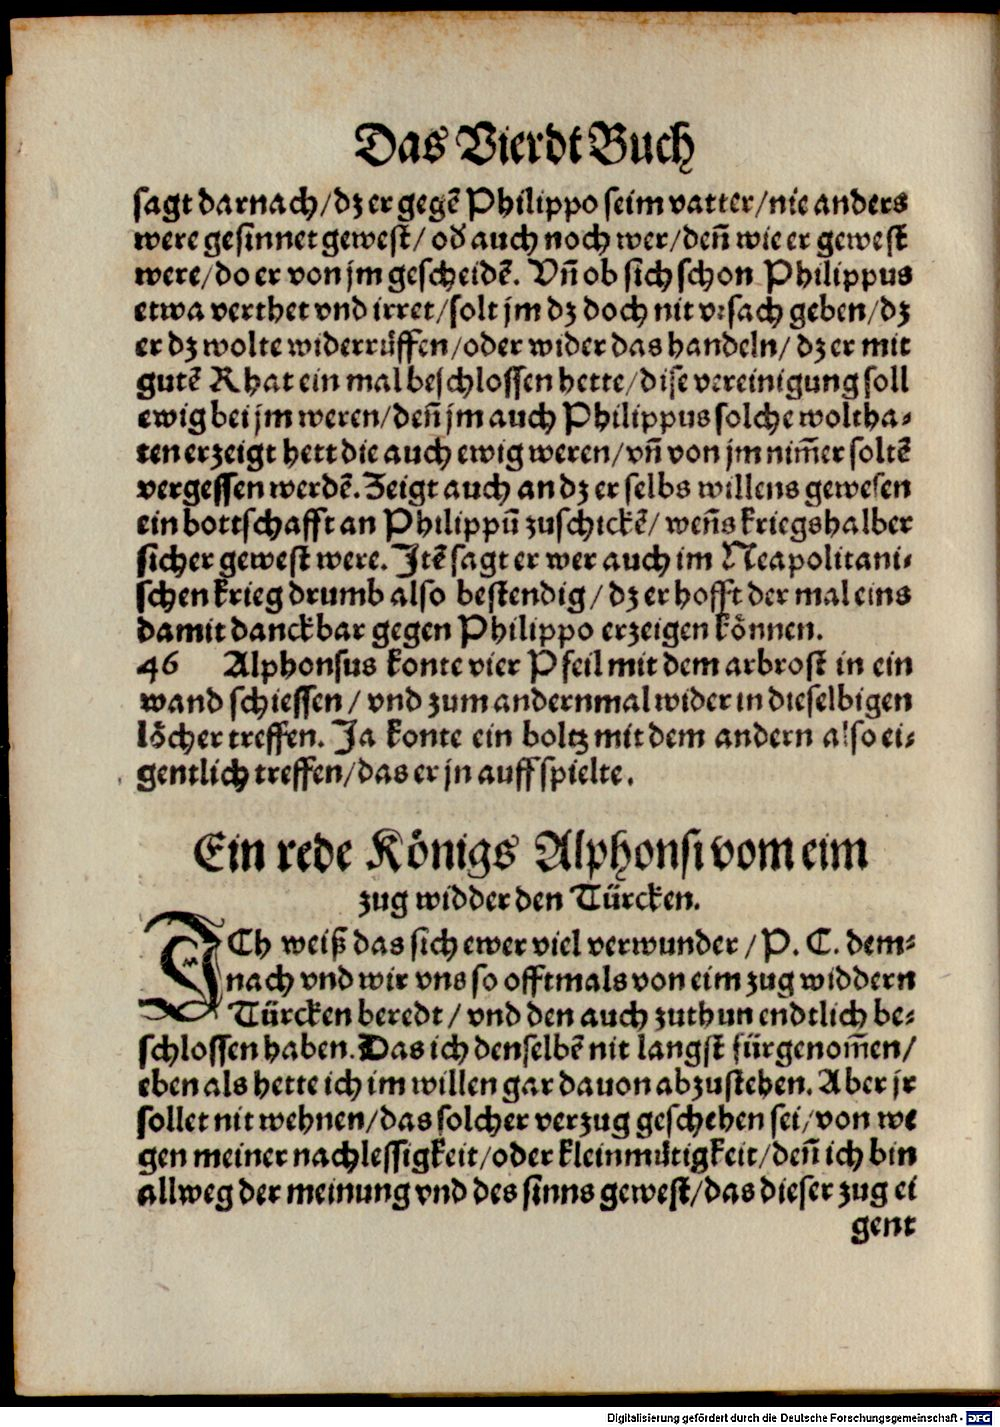 Das Vierdt Buch
sagt darnach/dz er gegē Philippo seim vatter/nie anders
were gesinnet gewest/ oď auch noch wer/deñ wie er gewest
were/do er von jm gescheidē. Vñ ob sich schon Philippus
etwa verthet vnd irret/solt jm dz doch nit vrsach geben/dz
er dz wolte widerrüffen/oder wider das handeln/ dz er mit
gutē Rhat ein mal beschlossen hette/dise vereinigung soll
ewig bei jm weren/deñ jm auch Philippus solche woltha-
ten erzeigt hett die auch ewig weren/vñ von jm nim̃er soltē
vergessen werdē. Zeigt auch an dz er selbs willens gewesen
ein bottschafft an Philippū zuschickē/ weñs kriegshalber
sicher gewest were. Jtē sagt er wer auch im Neapolitani-
schen krieg drumb also bestendig/ dz er hofft der mal eins
damit danckbar gegen Philippo erzeigen können.
46 Alphonsus konte vier Pfeil mit dem arbrost in ein
wand schiessen/ vnd zum andernmal wider in dieselbigen
löcher treffen. Ja konte ein boltz mit dem andern also ei-
gentlich treffen/das er jn auff spielte.
Ein rede Königs Alphonsi vom eim
zug widder den Türcken.
JCh weiß das sich ewer viel verwunder/P. C. dem-
nach vnd wir vns so offtmals von eim zug widdern
Türcken beredt/ vnd den auch zuthun endtlich be-
schlossen haben. Das ich denselbē nit langst fürgenom̃en/
eben als hette ich im willen gar dauon abzustehen. Aber jr
sollet nit wehnen/das solcher verzug geschehen sei/von we
gen meiner nachlessigkeit/oder kleinmütigkeit/deñ ich bin
allweg der meinung vnd des sinns gewest/das dieser zug ei
gent
Digitalisierung gefördert durch die Deutsche Forschungsgemeinschaft - DFG